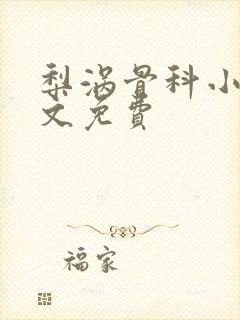 梨涡骨科小
文免費
福家